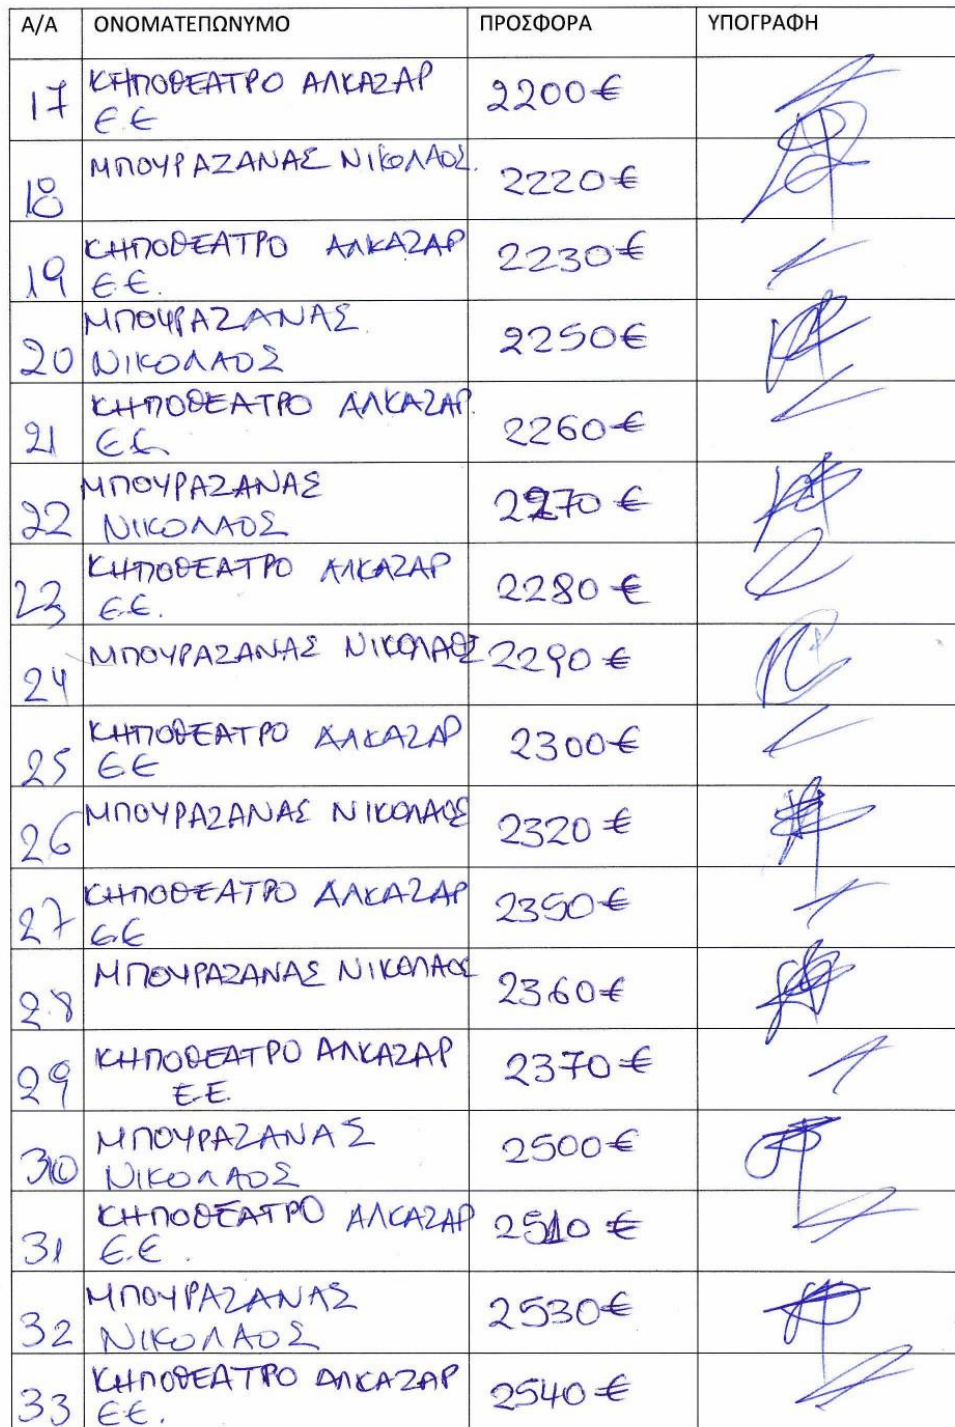 Α/Α ΟΝΟΜΑΤΕΠΩΝΥΜΟ ΠΡΟΣΦΟΡΑ ΥΠΟΓΡΑΦΗ
17 ΚΗΠΟΘΕΑΤΡΟ ΑΛΚΑΖΑΡ 2200€
Ε.Ε
18 ΜΠΟΥΡΑΖΑΝΑΣ ΝΙΚΟΛΑΟΣ. 2220€
19 ΚΗΠΟΘΕΑΤΡΟ ΑΛΚΑΖΑΡ 2230€
Ε.Ε.
20 ΜΠΟΥΡΑΖΑΝΑΣ 2250€
ΝΙΚΟΛΑΟΣ
21 ΚΗΠΟΘΕΑΤΡΟ ΑΛΚΑΖΑΡ. 2260€
Ε.Ε.
22 ΜΠΟΥΡΑΖΑΝΑΣ 2270€
ΝΙΚΟΛΑΟΣ
23 ΚΗΠΟΘΕΑΤΡΟ ΑΛΚΑΖΑΡ 2280€
Ε.Ε.
24 ΜΠΟΥΡΑΖΑΝΑΣ ΝΙΚΟΛΑΟΣ 2290€
25 ΚΗΠΟΘΕΑΤΡΟ ΑΛΚΑΖΑΡ 2300€
Ε.Ε
26 ΜΠΟΥΡΑΖΑΝΑΣ ΝΙΚΟΛΑΟΣ 2320€
27 ΚΗΠΟΘΕΑΤΡΟ ΑΛΚΑΖΑΡ 2350€
Ε.Ε
28 ΜΠΟΥΡΑΖΑΝΑΣ ΝΙΚΟΛΑΟΣ 2360€
29 ΚΗΠΟΘΕΑΤΡΟ ΑΛΚΑΖΑΡ 2370€
Ε.Ε.
30 ΜΠΟΥΡΑΖΑΝΑΣ 2500€
ΝΙΚΟΛΑΟΣ
31 ΚΗΠΟΘΕΑΤΡΟ ΑΛΚΑΖΑΡ 2510€
Ε.Ε.
32 ΜΠΟΥΡΑΖΑΝΑΣ 2530€
ΝΙΚΟΛΑΟΣ
33 ΚΗΠΟΘΕΑΤΡΟ ΑΛΚΑΖΑΡ 2540€
Ε.Ε.